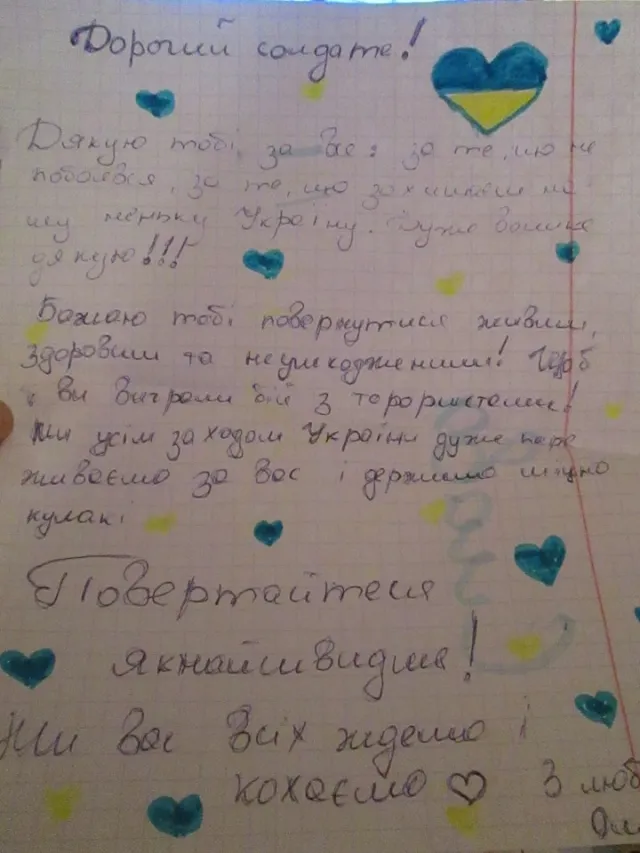 Дорогий солдате!
Дякую тобі за все: за те, що не
побоявся, за те, що захищаєш на-
шу неньку Україну. Дуже велике
дякую!!!
Бажаю тобі повернутися живим,
здоровим та неушкодженим! Щоб
ви виграли бій з терористами!
Ми усім заходом України дуже пере
живаємо за вас і держимо міцно
кулакі
Повертайтеся
якнайшвидше!
Ми вас всіх ждемо і
кохаємо З люб